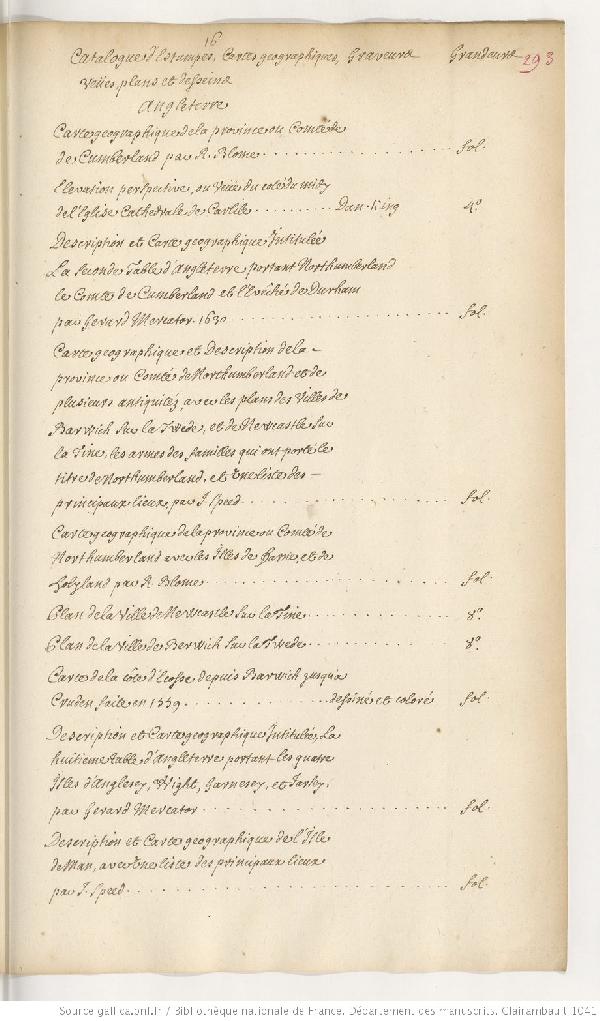 16
Catalogue d'Estampes, Cartes geographiques, Graveurs Grandeurs 293
Veües, plans et desseins
Angleterre
Carte geographique de la province ou Comté de
de Cumberland par R. Blome fol.
Elevation perspective, ou Veüe du coté du midy
de l'Eglise Cathedrale de Carlile Dan. King 4°
Description et Carte geographique Intitulée
La seconde Table d'Angleterre portant Northumberland
le Comté de Cumberland et l'Evêché de Durham
par Gerard Mercator. 1630 fol.
Carte geographique et Description de la
province ou Comté de Northumberland et de
plusieurs antiquitéz, avec les plans des Villes de
Barwich sur la Twede, et de Newcastle sur
la Tine, les armes des familles qui ont porté le
titre de Northumberland, et une liste des
principaux lieux, par J. Speed fol.
Carte geographique de la province ou Comté de
Northumberland avec les Isles de et de
par R. Blome fol.
Plan de la Ville de Newcastle sur la Tine 8°.
Plan de la Ville de Berwich sur la Twede 8°.
Carte de la côte d'Ecosse depuis Barwich jusqu'a
Cruden, faite en 1559 dessiné et coloré fol.
Description et Carte geographique Intitulée, La
huitieme table d'Angleterre portant les quatre
Isles d'Anglesey, Wight, Garnesey, et Jarsey,
par Gerard Mercator fol.
Description et Carte geographique de l'Isle
de Man, avec une liste des principaux lieux
par J. Speed fol.
Source gallica.bnf.fr / Bibliothèque nationale de France. Département des manuscrits. Clairambault 1041